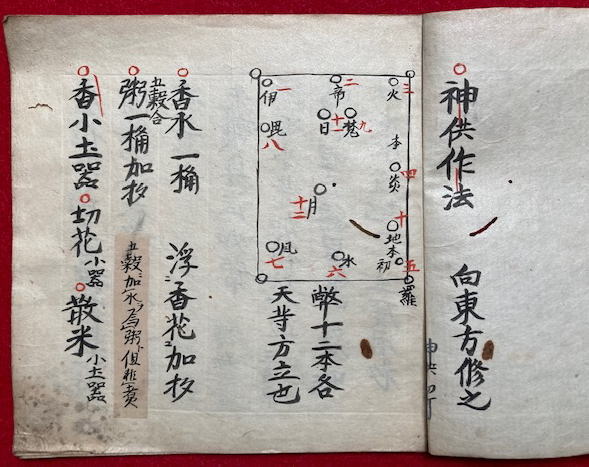 神供作法 向東方修之
火 三
帝 二
伊 一
梵 九
日 十一
毘 八
本
炎 四
月 十二
地 十
本
初
羅 五
水 六
風 七
幣十二本各
天等方立也
香水一桶 浮香花加杓
五穀合
粥一桶加杓
五穀加水為粥但非煮
香小土器 切花小器 散米小土器